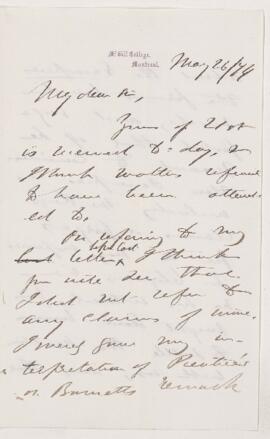 McGill College,
Montreal.
May 26/74
My dear Sir,
Yours of 21st
is received to-day, &
I think matters referred
to have been attend-
ed to.
On referring to my
last but last
letter, I think
you will see that
I did not refer to
any claims of mine.
I merely gave my in-
terpretation of
or remark